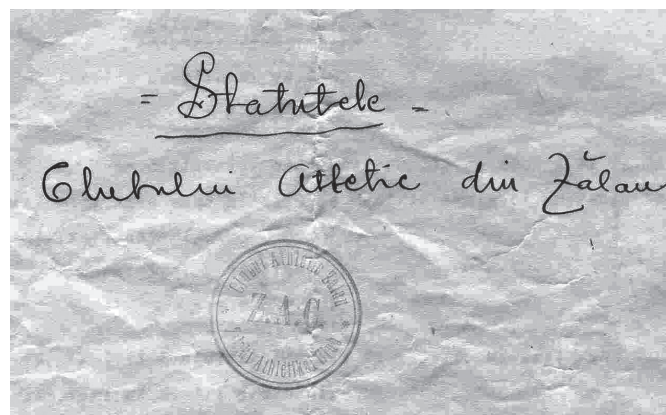 = Statutele -
Clubului Atletic din Zălau
Clubul Athletic Zălău
Z.A.C.
Zilahi Athletikai Club